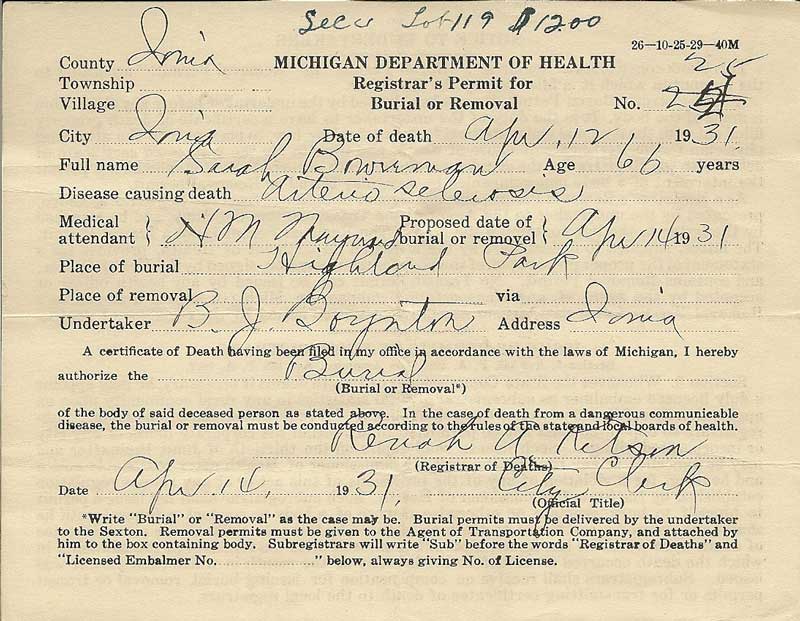 Sec Lot 119 $12.00
26—10-25-29—40M
County Ionia
MICHIGAN DEPARTMENT OF HEALTH
Township
Registrar's Permit for
25
Village
Burial or Removal
No.
City Ionia Date of death Apr. 12, 1931.
Full name Sarah Bowerman Age 66 years
Disease causing death Arterio sclerosis
Medical attendant } H M Maynard Proposed date of burial or removel } Apr 14 1931
Place of burial Highland Park
Place of removal via
Undertaker B. J. Boynton Address Ionia
A certificate of Death having been filed in my office in accordance with the laws of Michigan, I hereby
authorize the Burial
(Burial or Removal*)
of the body of said deceased person as stated above. In the case of death from a dangerous communicable
disease, the burial or removal must be conducted according to the rules of the state and local boards of health.
A.
(Registrar of Deaths)
Date Apr 14, 1931. City Clerk
(Official Title)
*Write "Burial" or "Removal" as the case may be. Burial permits must be delivered by the undertaker
to the Sexton. Removal permits must be given to the Agent of Transportation Company, and attached by
him to the box containing body. Subregistrars will write "Sub" before the words "Registrar of Deaths" and
"Licensed Embalmer No. " below, always giving No. of License.